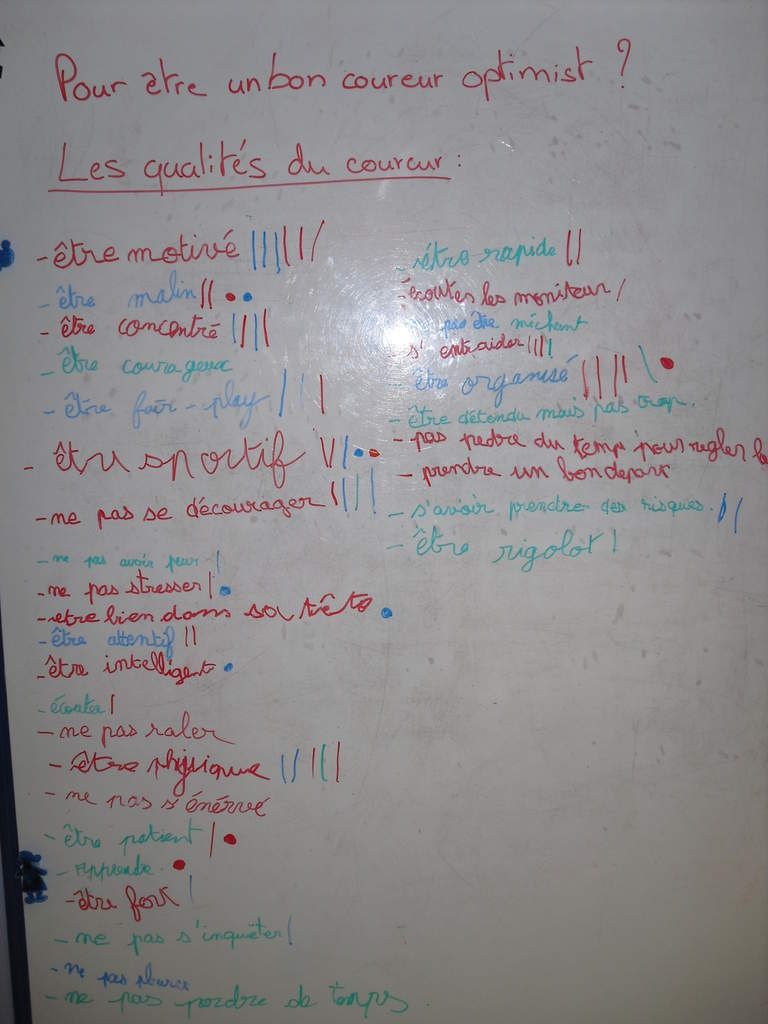 Pour être un bon coureur optimist ?
Les qualités du coureur :
- être motivé
- être malin
- être concentré
- être courageux
- être fair-play
- être sportif
- ne pas se décourager
- ne pas avoir peur
- ne pas stresser
- etre bien dans sa tête
- être attentif
- être intelligent
- écouter
- ne pas raler
- être physique
- ne pas s'énérvé
- être patient
- apprendre
- être fort
- ne pas s'inquièter
- ne pas
- ne pas perdre de temps.
- être rapide
- écoutes les moniteur
pas être méchant
- s'entraider
- être organisé
- être détendu mais pas trop.
- pas pedre du temps pour regler
- prendre un bon depart
- s'avoir prendre des risques.
- être rigolot !